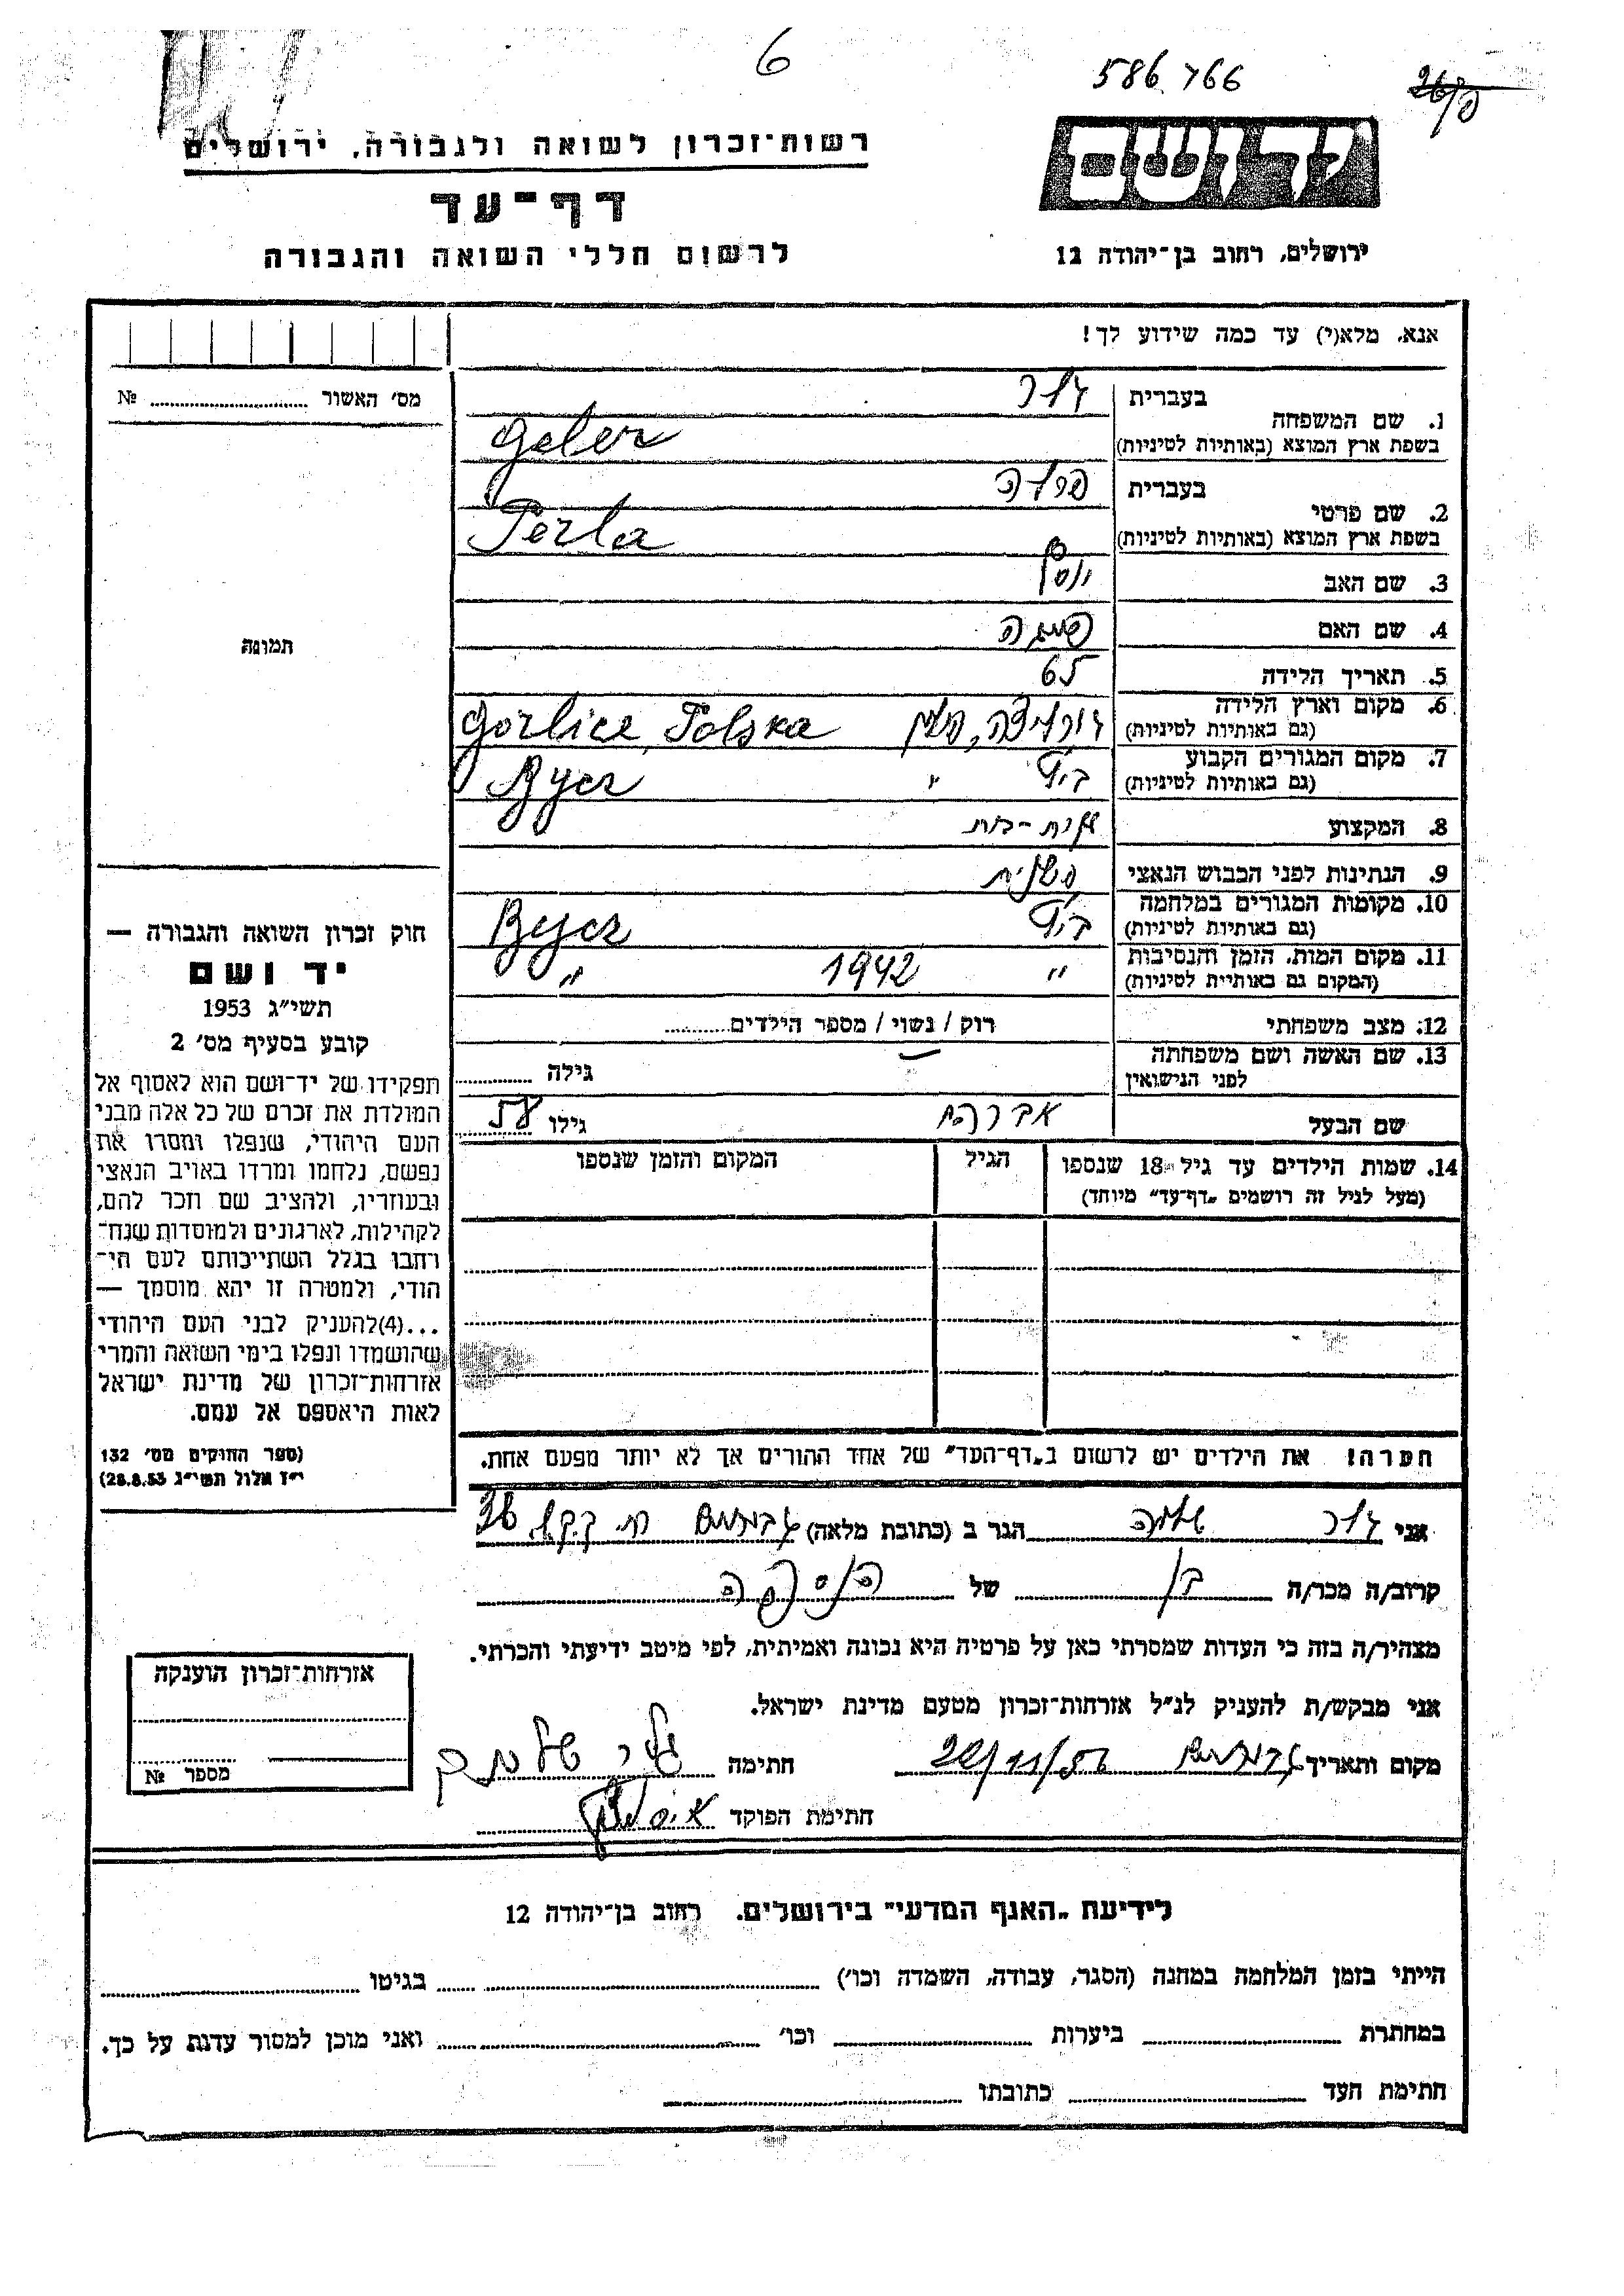 6
586 766
26/פ
רשות־זכרון לשואה ולגבורה, ירושלים
יד ושם
דף־עד
לרשום חללי השואה והגבורה
ירושלים, רחוב בן־יהודה 12
אנא, מלא(י) עד כמה שידוע לך!
מס׳ האשור № 
1. שם המשפחה
בעברית גלר
בשפת ארץ המוצא (באותיות לטיניות) Geler
2. שם פרטי
בעברית פרלה
בשפת ארץ המוצא (באותיות לטיניות) Perla
3. שם האב יוסף
4. שם האם
תמונה
5. תאריך הלידה 65
6. מקום וארץ הלידה
(גם באותיות לטיניות) גורליצה, פולין Gorlice, Polska
7. מקום המגורים הקבוע
(גם באותיות לטיניות) ביץ׳ " Byez
8. המקצוע עקרת-בית
9. הנתינות לפני הכבוש הנאצי פולנית
10. מקומות המגורים במלחמה
(גם באותיות לטיניות) ביץ׳ Byez
11. מקום המות, הזמן והנסיבות
(המקום גם באותיות לטיניות) " 1942 "
12. מצב משפחתי רוק / נשוי / מספר הילדים
13. שם האשה ושם משפחתה
לפני הנישואין גילה
שם הבעל אברהם גילו
14. שמות הילדים עד גיל 18 שנספו
(מעל לגיל זה רושמים „דף־עד״ מיוחד)
הגיל
המקום והזמן שנספו
חוק זכרון השואה והגבורה —
יד ושם
תשי״ג 1953
קובע בסעיף מס׳ 2
תפקידו של יד־ושם הוא לאסוף אל
המולדת את זכרם של כל אלה מבני
העם היהודי, שנפלו ומסרו את
נפשם, נלחמו ומרדו באויב הנאצי
ובעוזריו, ולהציב שם וזכר להם,
לקהילות, לארגונים ולמוסדות שנח־
רבו בגלל השתייכותם לעם הי־
הודי, ולמטרה זו יהא מוסמך —
...(4) להעניק לבני העם היהודי
שהושמדו ונפלו בימי השואה והמרי
אזרחות־זכרון של מדינת ישראל
לאות היאספם אל עמם.
(ספר החוקים מס׳ 132
י״ז אלול תשי״ג 28.8.53)
הערה! את הילדים יש לרשום ב„דף־העד״ של אחד ההורים אך לא יותר מפעם אחת.
אני גלר שלמה הגר ב (כתובת מלאה)
קרוב/ה מכר/ה בן של הנספה
מצהיר/ה בזה כי העדות שמסרתי כאן על פרטיה היא נכונה ואמיתית, לפי מיטב ידיעתי והכרתי.
אני מבקש/ת להעניק לנ״ל אזרחות־זכרון מטעם מדינת ישראל.
מקום ותאריך 22/11/56 חתימה גלר שלמה
חתימת הפוקד
אזרחות־זכרון הוענקה
מספר №
לידיעת „האגף המדעי״ בירושלים. רחוב בן־יהודה 12
הייתי בזמן המלחמה במחנה (הסגר, עבודה, השמדה וכו׳) בגיטו
במחתרת ביערות וכו׳ ואני מוכן למסור עדות על כך.
חתימת העד כתובתו